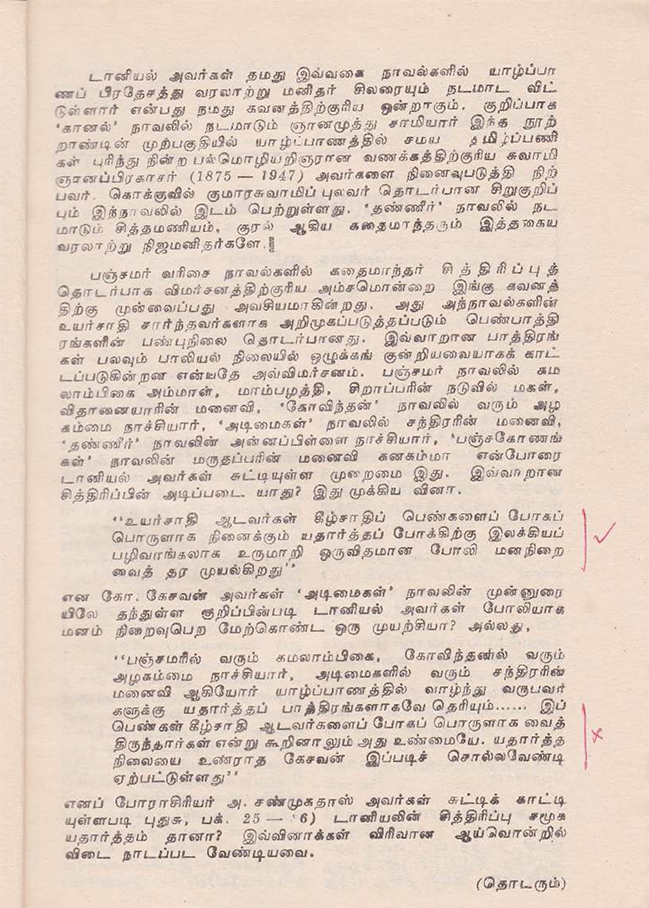 டானியல் அவர்கள் தமது இவ்வகை நாவல்களில் யாழ்ப்பா
ணப் பிரதேசத்து வரலாற்று மனிதர் சிலரையும் நடமாட விட்
டுள்ளார் என்பது நமது கவனத்திற்குரிய ஒன்றாகும். குறிப்பாக
‘கானல்’ நாவலில் நடமாடும் ஞானமுத்து சாமியார் இந்த நூற்
றாண்டின் முற்பகுதியில் யாழ்ப்பாணத்தில் சமய தமிழ்ப்பணி
கள் புரிந்து நின்ற பல்மொழியறிஞரான வணக்கத்திற்குரிய சுவாமி
ஞானப்பிரகாசர் (1875 — 1947) அவர்களை நினைவுபடுத்தி நிற்
பவர். கொக்குவில் குமாரசுவாமிப் புலவர் தொடர்பான சிறுகுறிப்
பும் இந்நாவலில் இடம் பெற்றுள்ளது. ‘தண்ணீர்’ நாவலில் நட
மாடும் சித்தமணியம், குரல் ஆகிய கதைமாந்தரும் இத்தகைய
வரலாற்று நிஜமனிதர்களே.
பஞ்சமர் வரிசை நாவல்களில் கதைமாந்தர் சித்திரிப்புத்
தொடர்பாக விமர்சனத்திற்குரிய அம்சமொன்றை இங்கு கவனத்
திற்கு முன்வைப்பது அவசியமாகின்றது. அது அந்நாவல்களின்
உயர்சாதி சார்ந்தவர்களாக அறிமுகப்படுத்தப்படும் பெண்பாத்தி
ரங்களின் பண்புநிலை தொடர்பானது. இவ்வாறான பாத்திரங்
கள் பலவும் பாலியல் நிலையில் ஒழுக்கங் குன்றியவையாகக் காட்
டப்படுகின்றன என்பதே அவ்விமர்சனம். பஞ்சமர் நாவலில் கம
லாம்பிகை அம்மாள், மாம்பழத்தி, சிறாப்பரின் நடுவில் மகள்,
விதானையாரின் மனைவி, ‘கோவிந்தன்’ நாவலில் வரும் அழ
கம்மை நாச்சியார், ‘அடிமைகள்’ நாவலில் சந்திரரின் மனைவி,
‘தண்ணீர்’ நாவலின் அன்னப்பிள்ளை நாச்சியார், ‘பஞ்சகோணங்
கள்’ நாவலின் மருதப்பரின் மனைவி கனகம்மா என்போரை
டானியல் அவர்கள் சுட்டியுள்ள முறைமை இது. இவ்வாறான
சித்திரிப்பின் அடிப்படை யாது? இது முக்கிய வினா.
‘‘உயர்சாதி ஆடவர்கள் கீழ்சாதிப் பெண்களைப் போகப்
பொருளாக நினைக்கும் யதார்த்தப் போக்கிற்கு இலக்கியப்
பழிவாங்கலாக உருமாறி ஒருவிதமான போலி மனநிறை
வைத் தர முயல்கிறது’’
என கோ. கேசவன் அவர்கள் ‘அடிமைகள்’ நாவலின் முன்னுரை
யிலே தந்துள்ள குறிப்பின்படி டானியல் அவர்கள் போலியாக
மனம் நிறைவுபெற மேற்கொண்ட ஒரு முயற்சியா? அல்லது,
‘‘பஞ்சமரில் வரும் கமலாம்பிகை, கோவிந்தனில் வரும்
அழகம்மை நாச்சியார், அடிமைகளில் வரும் சந்திரரின்
மனைவி ஆகியோர் யாழ்ப்பாணத்தில் வாழ்ந்து வருபவர்
களுக்கு யதார்த்தப் பாத்திரங்களாகவே தெரியும்...... இப்
பெண்கள் கீழ்சாதி ஆடவர்களைப் போகப் பொருளாக வைத்
திருந்தார்கள் என்று கூறினாலும் அது உண்மையே. யதார்த்த
நிலையை உணராத கேசவன் இப்படிச் சொல்லவேண்டி
ஏற்பட்டுள்ளது’’
எனப் பேராசிரியர் அ. சண்முகதாஸ் அவர்கள் சுட்டிக் காட்டி
யுள்ளபடி புதுசு, பக். 25 — 6) டானியலின் சித்திரிப்பு சமூக
யதார்த்தம் தானா? இவ்வினாக்கள் விரிவான ஆய்வொன்றில்
விடை நாடப்பட வேண்டியவை.
(தொடரும்)